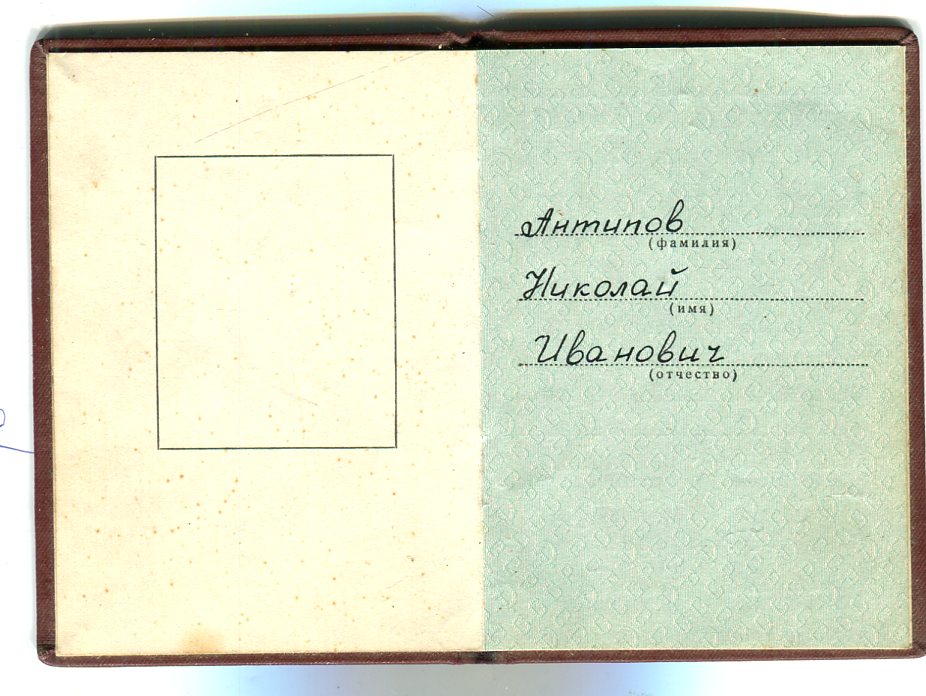 Антипов
(фамилия)
Николай
(имя)
Иванович
(отчество)